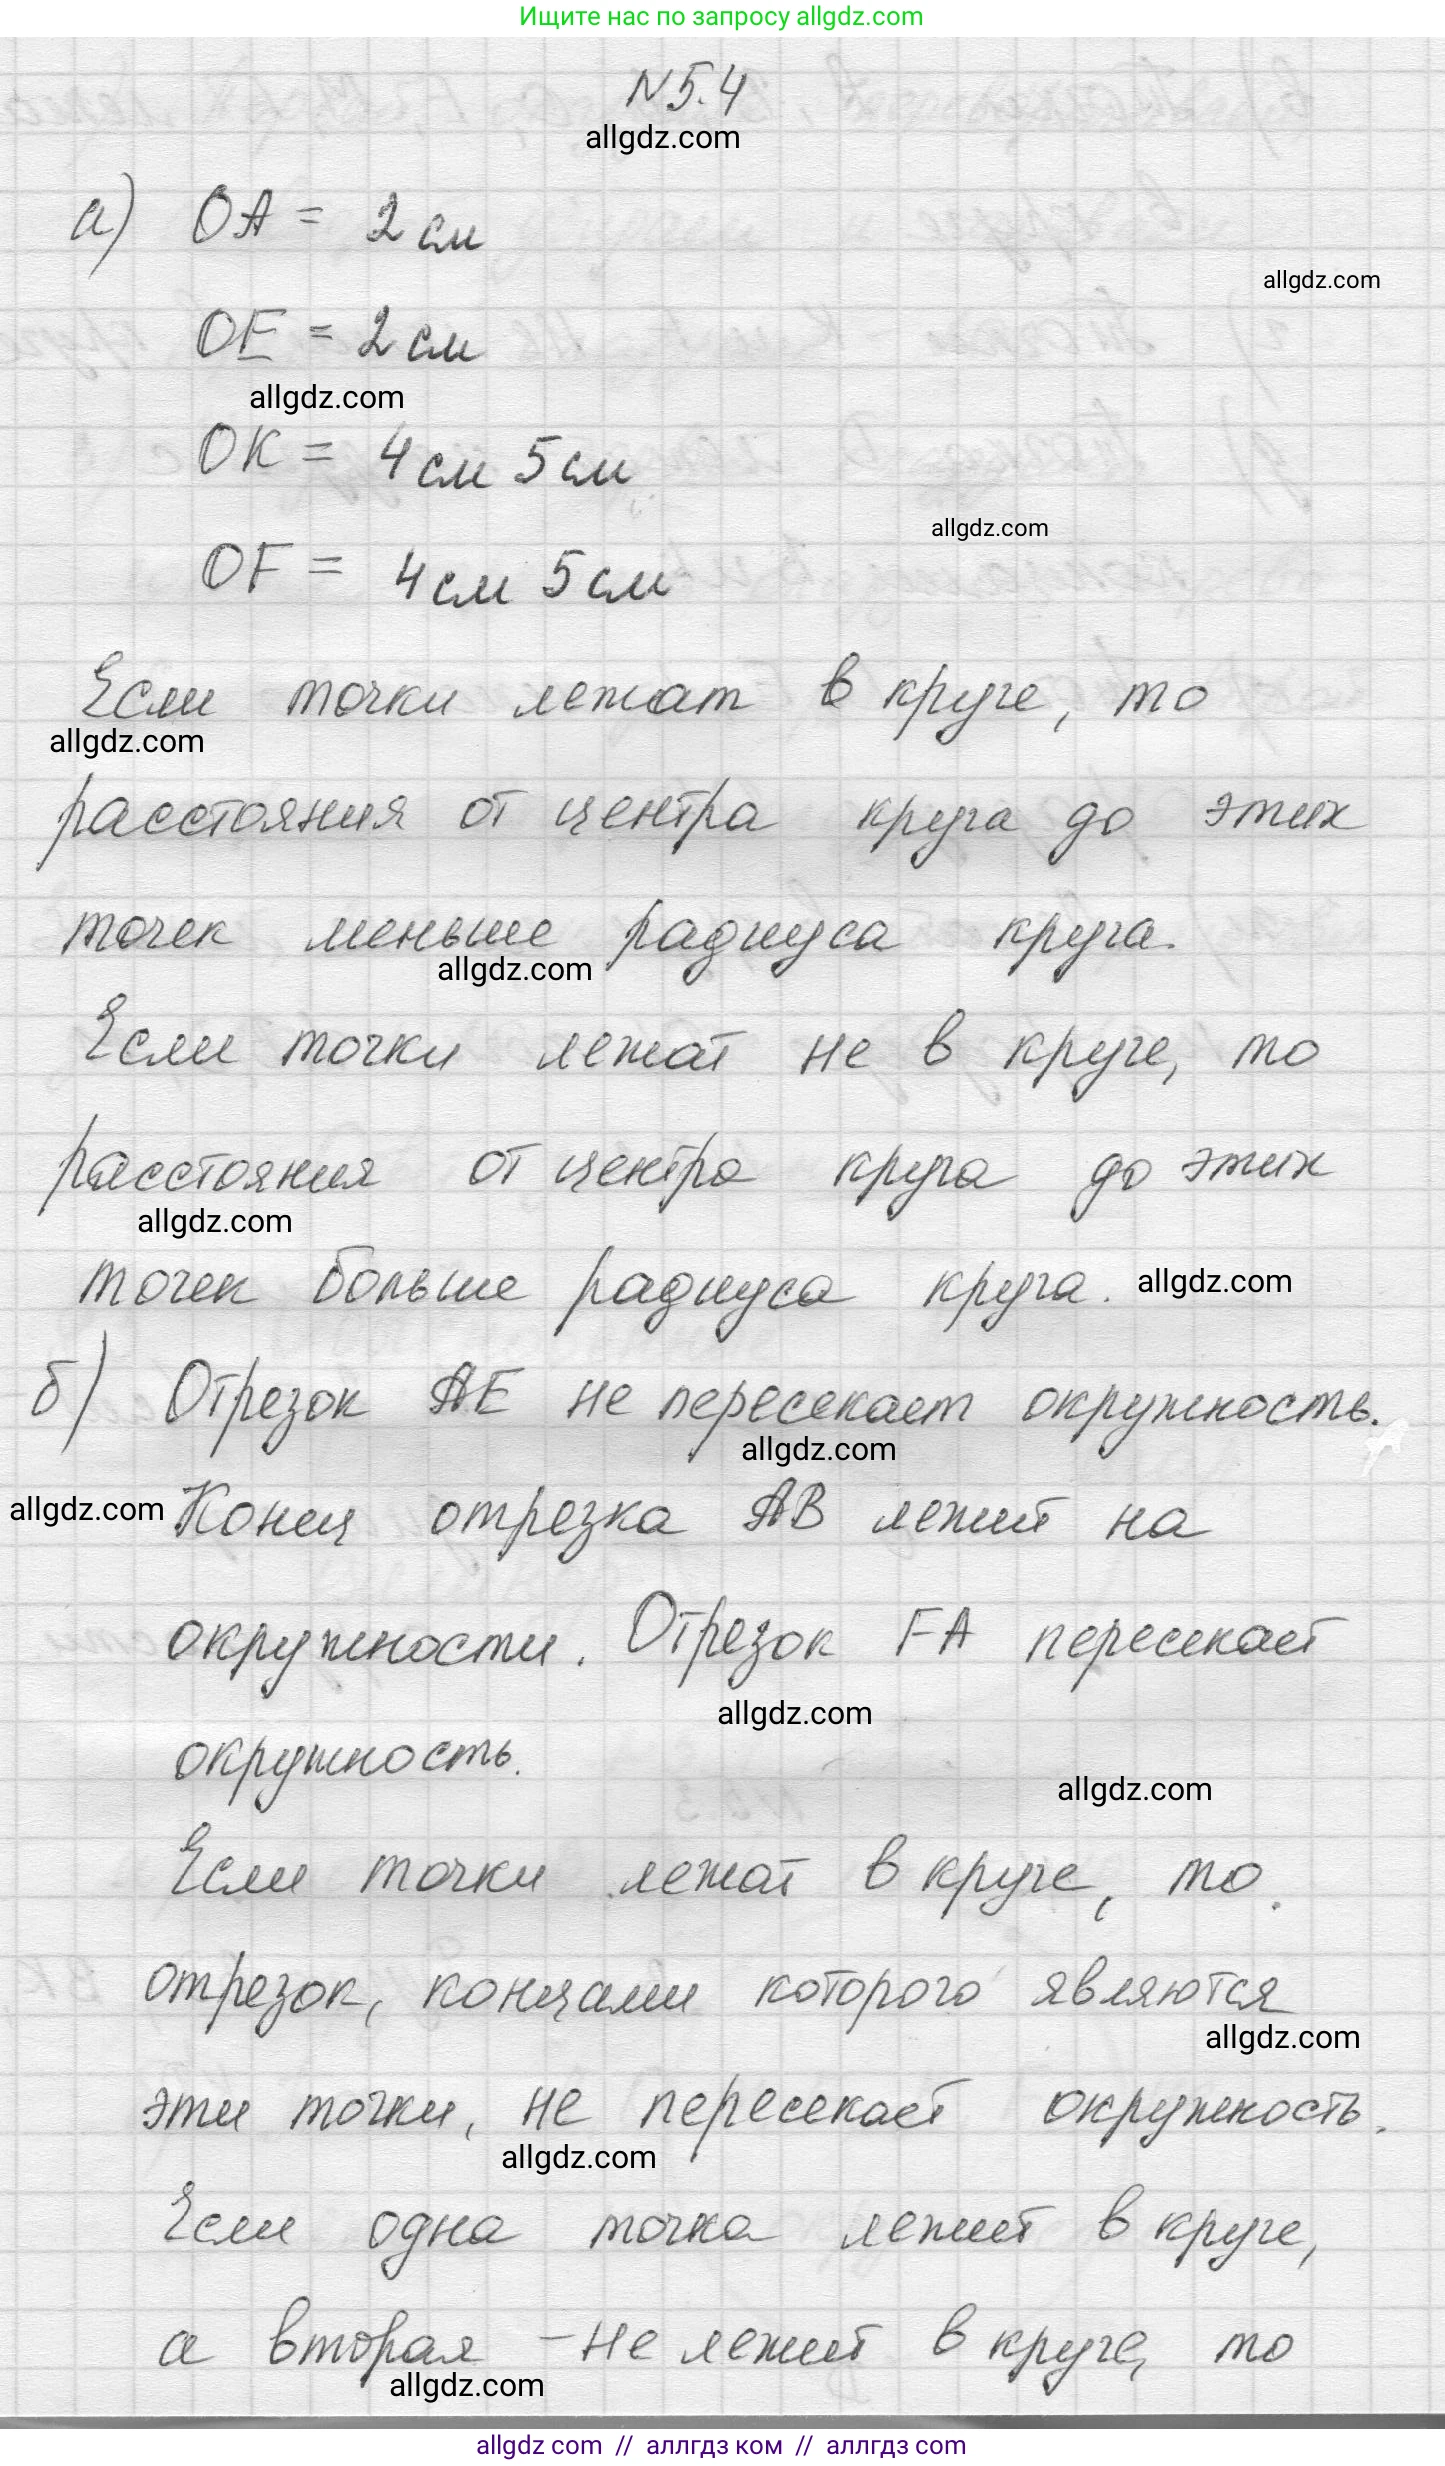 Ищите нас по запросу allgdz.com
№5.4
allgdz.com
а) OA = 2 см
allgdz.com
OE = 2 см
allgdz.com
OK = 4 см 5 см
allgdz.com
OF = 4 см 5 см
Если точки лежат в круге, то
allgdz.com
расстояния от центра круга до этих
точек меньше радиуса круга.
allgdz.com
Если точки лежат не в круге, то
расстояния от центра круга до этих
allgdz.com
точек больше радиуса круга. allgdz.com
б) Отрезок AE не пересекает окружность.
allgdz.com
allgdz.com Конец отрезка AB лежит на
окружности. Отрезок FA пересекает
allgdz.com
окружность.
allgdz.com
Если точки лежат в круге, то
отрезок, концами которого являются
allgdz.com
эти точки, не пересекает окружность.
allgdz.com
Если одна точка лежит в круге,
а вторая – не лежит в круге, то
allgdz.com
allgdz com // аллгдз ком // аллгдз com